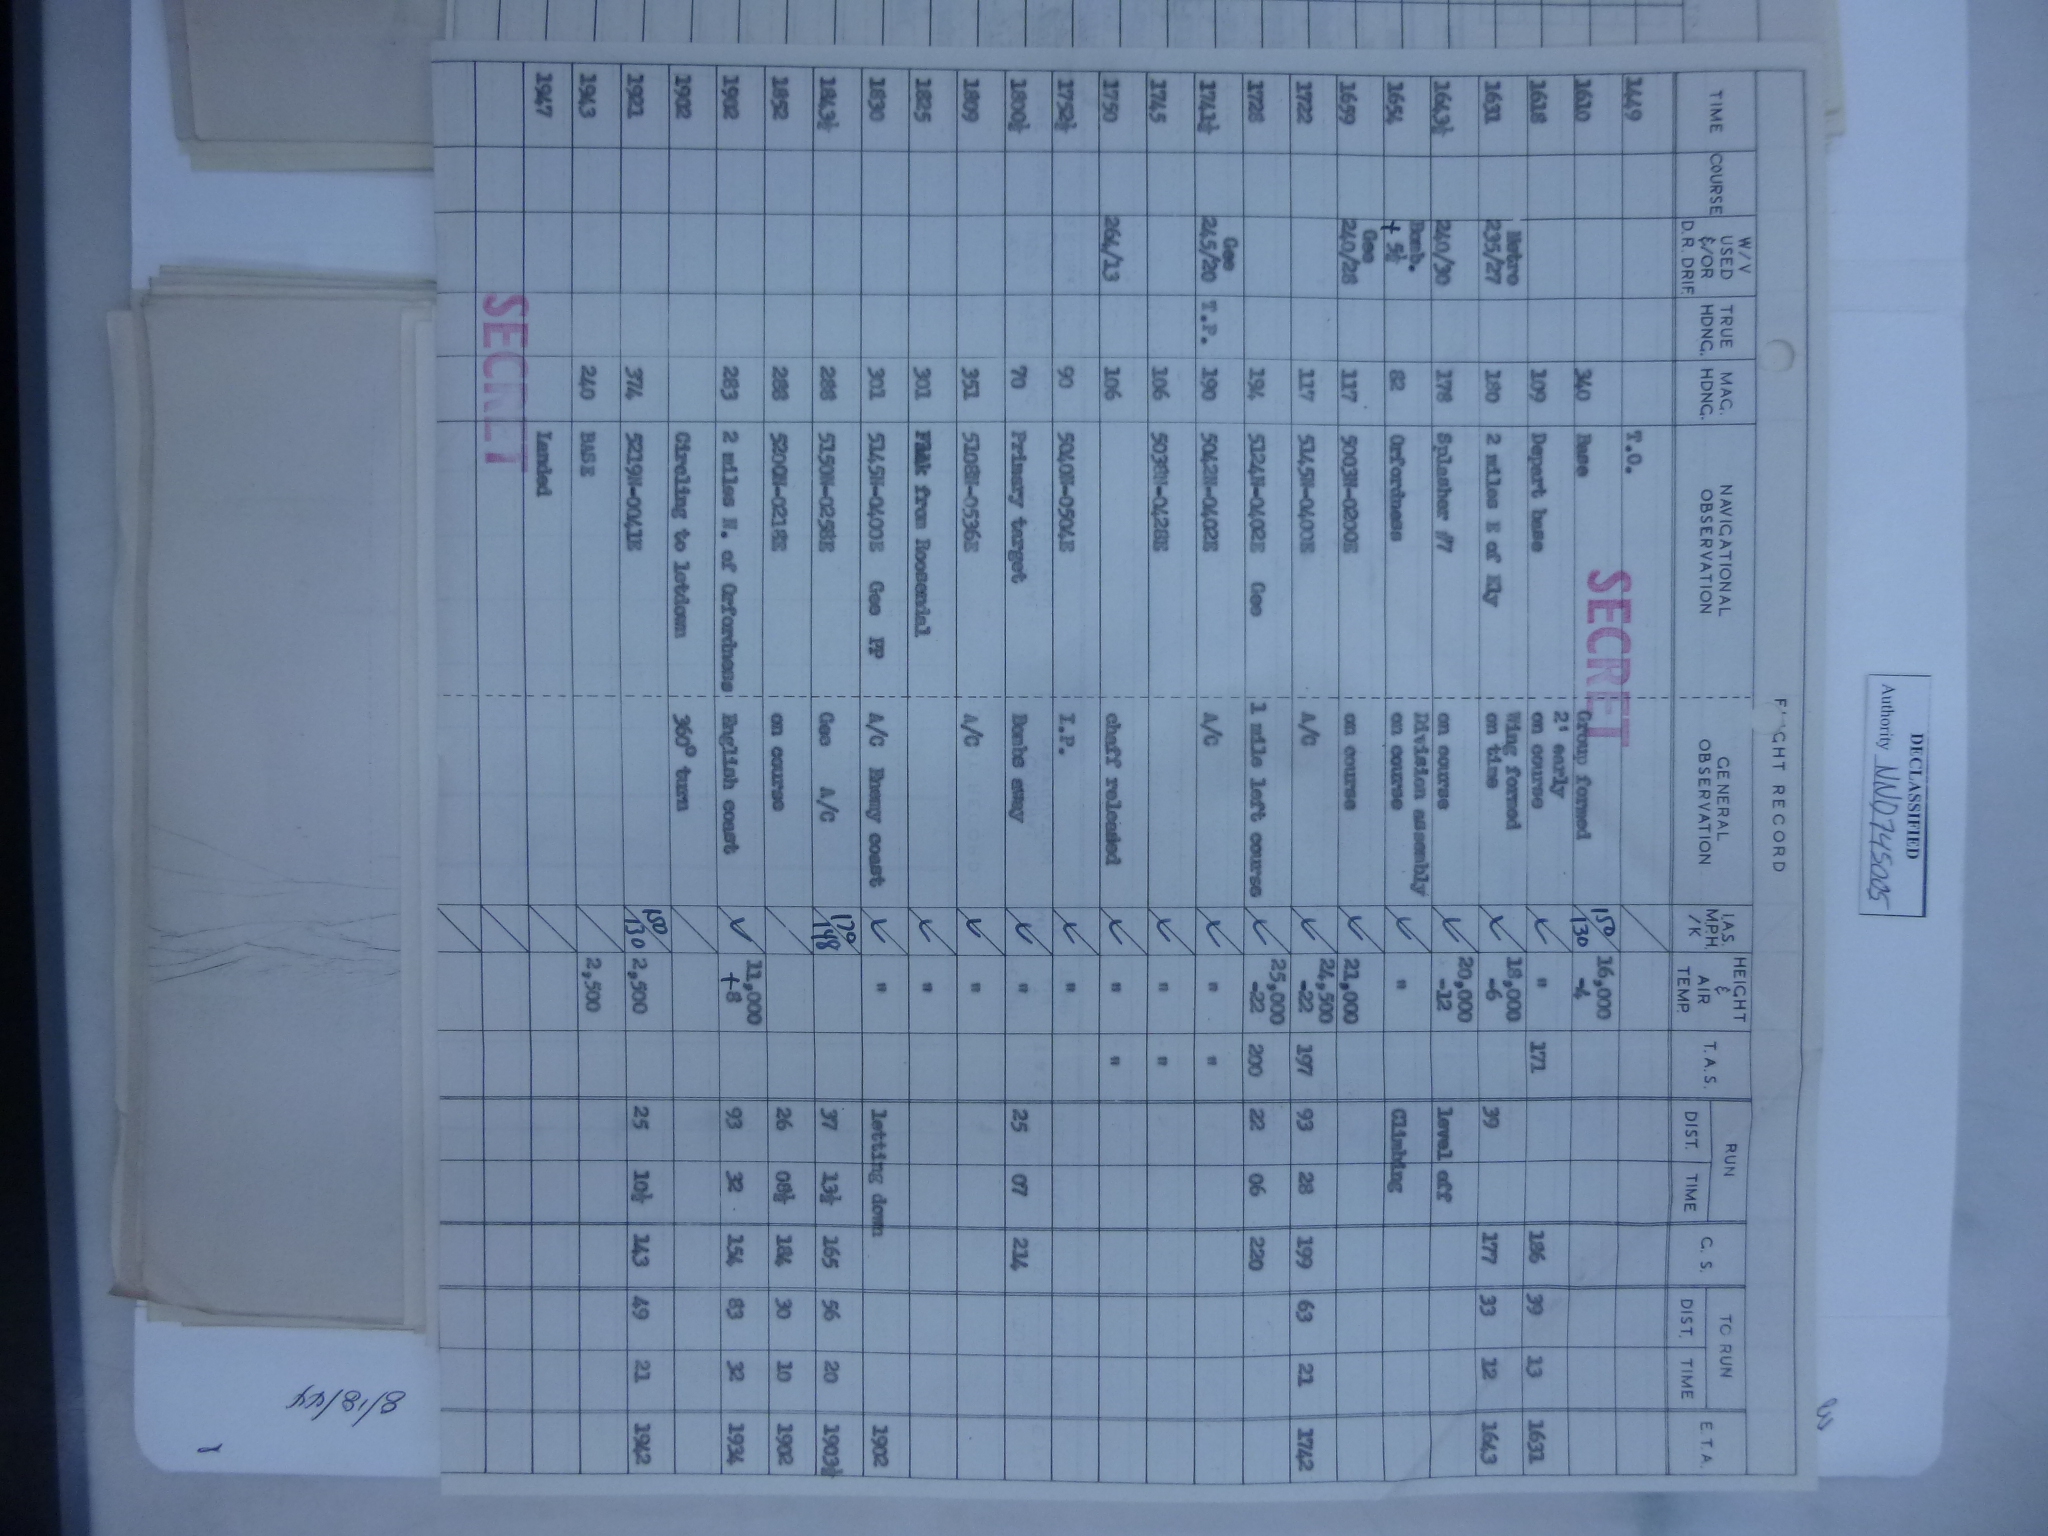 DECLASSIFIED
Authority NND745005
FLIGHT RECORD
TIME COURSE W/V USED &/OR D.R. DRIF. TRUE HDNG. MAG. HDNG. NAVIGATIONAL OBSERVATION GENERAL OBSERVATION I.A.S. MPH. /K HEIGHT & AIR TEMP. T.A.S. RUN DIST. TIME G. S. TO RUN DIST. TIME E.T.A.
1449 T.O.
SECRET
1610 340 Base Group formed 2' early 150/130 16,000 -4
1618 109 Depart base on course ✓ " 171 186 39 13 1631
1631 Metro 235/27 180 2 miles E of Ely Wing formed on time ✓ 18,000 -6 39 177 33 12 1643
1643½ 240/30 178 Splasher #7 on course ✓ 20,000 -12 level off
1654 Bomb. + 5½ 82 Orfordness Division assembly on course ✓ " Climbing
1659 Gee 240/28 117 5003N-0200E on course 21,000
1722 117 5145N-0400E A/C ✓ 24,500 -22 197 93 28 199 63 21 1742
1728 194 5124N-0402E Gee 1 mile left course ✓ 25,000 -22 200 22 06 220
1741½ Gee 245/20 T.P. 190 5042N-0402E A/C ✓ " "
1745 106 5038N-0428E ✓ " "
1750 264/13 106 chaff released ✓ " "
1752½ 90 5040N-0504E I.P. ✓ "
1800½ 70 Primary target Bombs away ✓ " 25 07 214
1809 351 5108N-0536E A/C ✓ "
1825 301 Flak from Roosendal ✓ "
1830 301 5145N-0400E Gee PP A/C Enemy coast ✓ " letting down 1902
1843½ 288 5150N-0258E Gee A/C 170/148 37 13½ 165 56 20 1903½
1852 288 5200N-0218E on course 26 08½ 184 30 10 1902
1902 283 2 miles N. of Orfordness English coast ✓ 11,000 +8 93 32 154 83 32 1934
1902 Circling to letdown 360° turn
1921 374 5219N-0041E 150/130 2,500 25 10½ 143 49 21 1942
1943 240 BASE 2,500
1947 Landed
SECRET
8/18/44